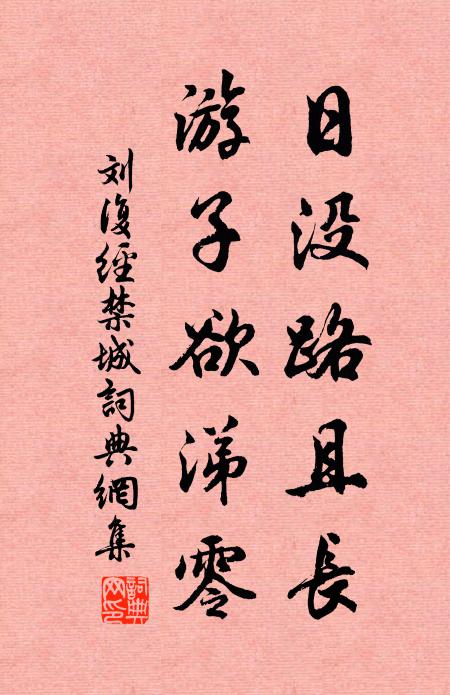 日没路且長
游子欲涕零
刘復經禁城詞典網集
詞典網印